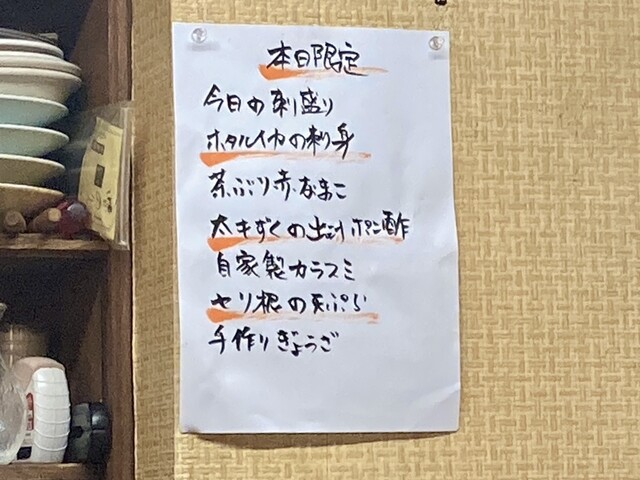 本日限定
今日の刺盛り
ホタルイカの刺身
茶ぶり赤なまこ
太もずくの出汁ポン酢
自家製カラスミ
セリ根の天ぷら
手作りぎょうざ